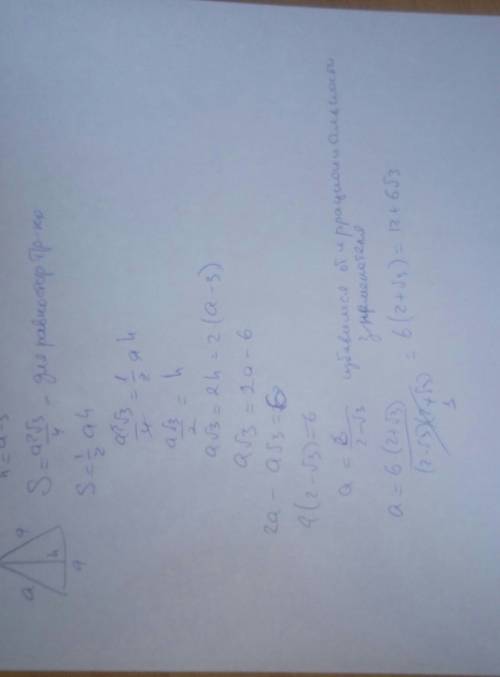 h = a - 3
a
a
h
a
S = a²√3/4 - для равностор тр-ка
S = 1/2 ah
a²√3/4 = 1/2 ah
a√3/2 = h
a√3 = 2h = 2(a-3)
a√3 = 2a - 6
2a - a√3 = 6
a(2-√3) = 6
a = 6/(2-√3) избавимся от иррациональности знаменателя
a = 6(2+√3)/((2-√3)(2+√3)) = 6(2+√3) = 12 + 6√3
1